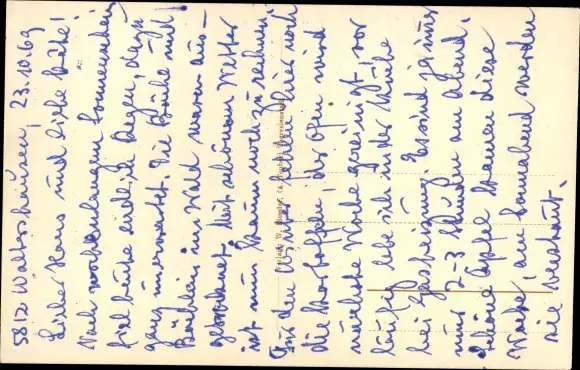 5812 Waltershausen, 23.10.69
Lieber Hans und liebe Käthe!
Nach wochenlangem Sonnenschein
fiel heute endlich Regen, dazu
ganz unerwartet. Die Bäche und
Bächlein im Wald waren aus-
getrocknet. Mit schönem Wetter
ist nun kaum noch zu rechnen.
Für den Winter fehlen hier noch
die Kartoffeln, der Ofen wird
nächste Woche gereinigt, vor-
läufig lebe ich in der Küche
bei Gasheizung. Es sind ja immer
nur 2-3 Stunden am Abend.
Schöne Äpfel kamen diese
Woche, am Sonnabend werden
sie verstaut.